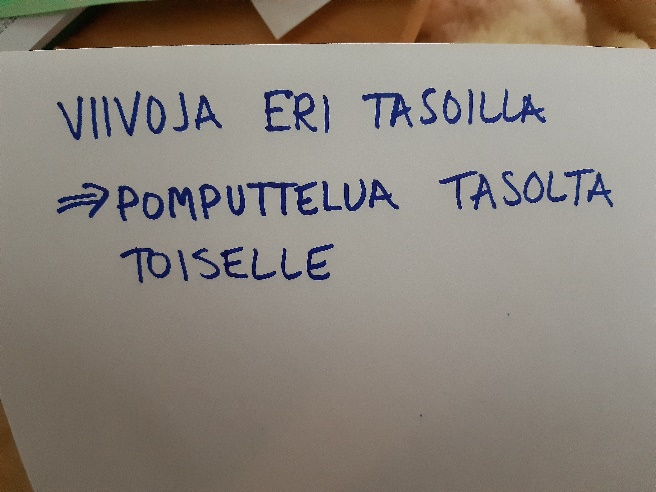 VIIVOJA ERI TASOILLA
⇒ POMPUTTELUA TASOLTA
TOISELLE